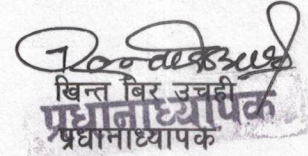 खिन्त बिर उचही
प्रधानाध्यापक
प्रधानाध्यापक